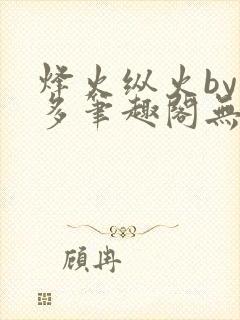 烽火纵火by
多笔趣阁無
顾冉